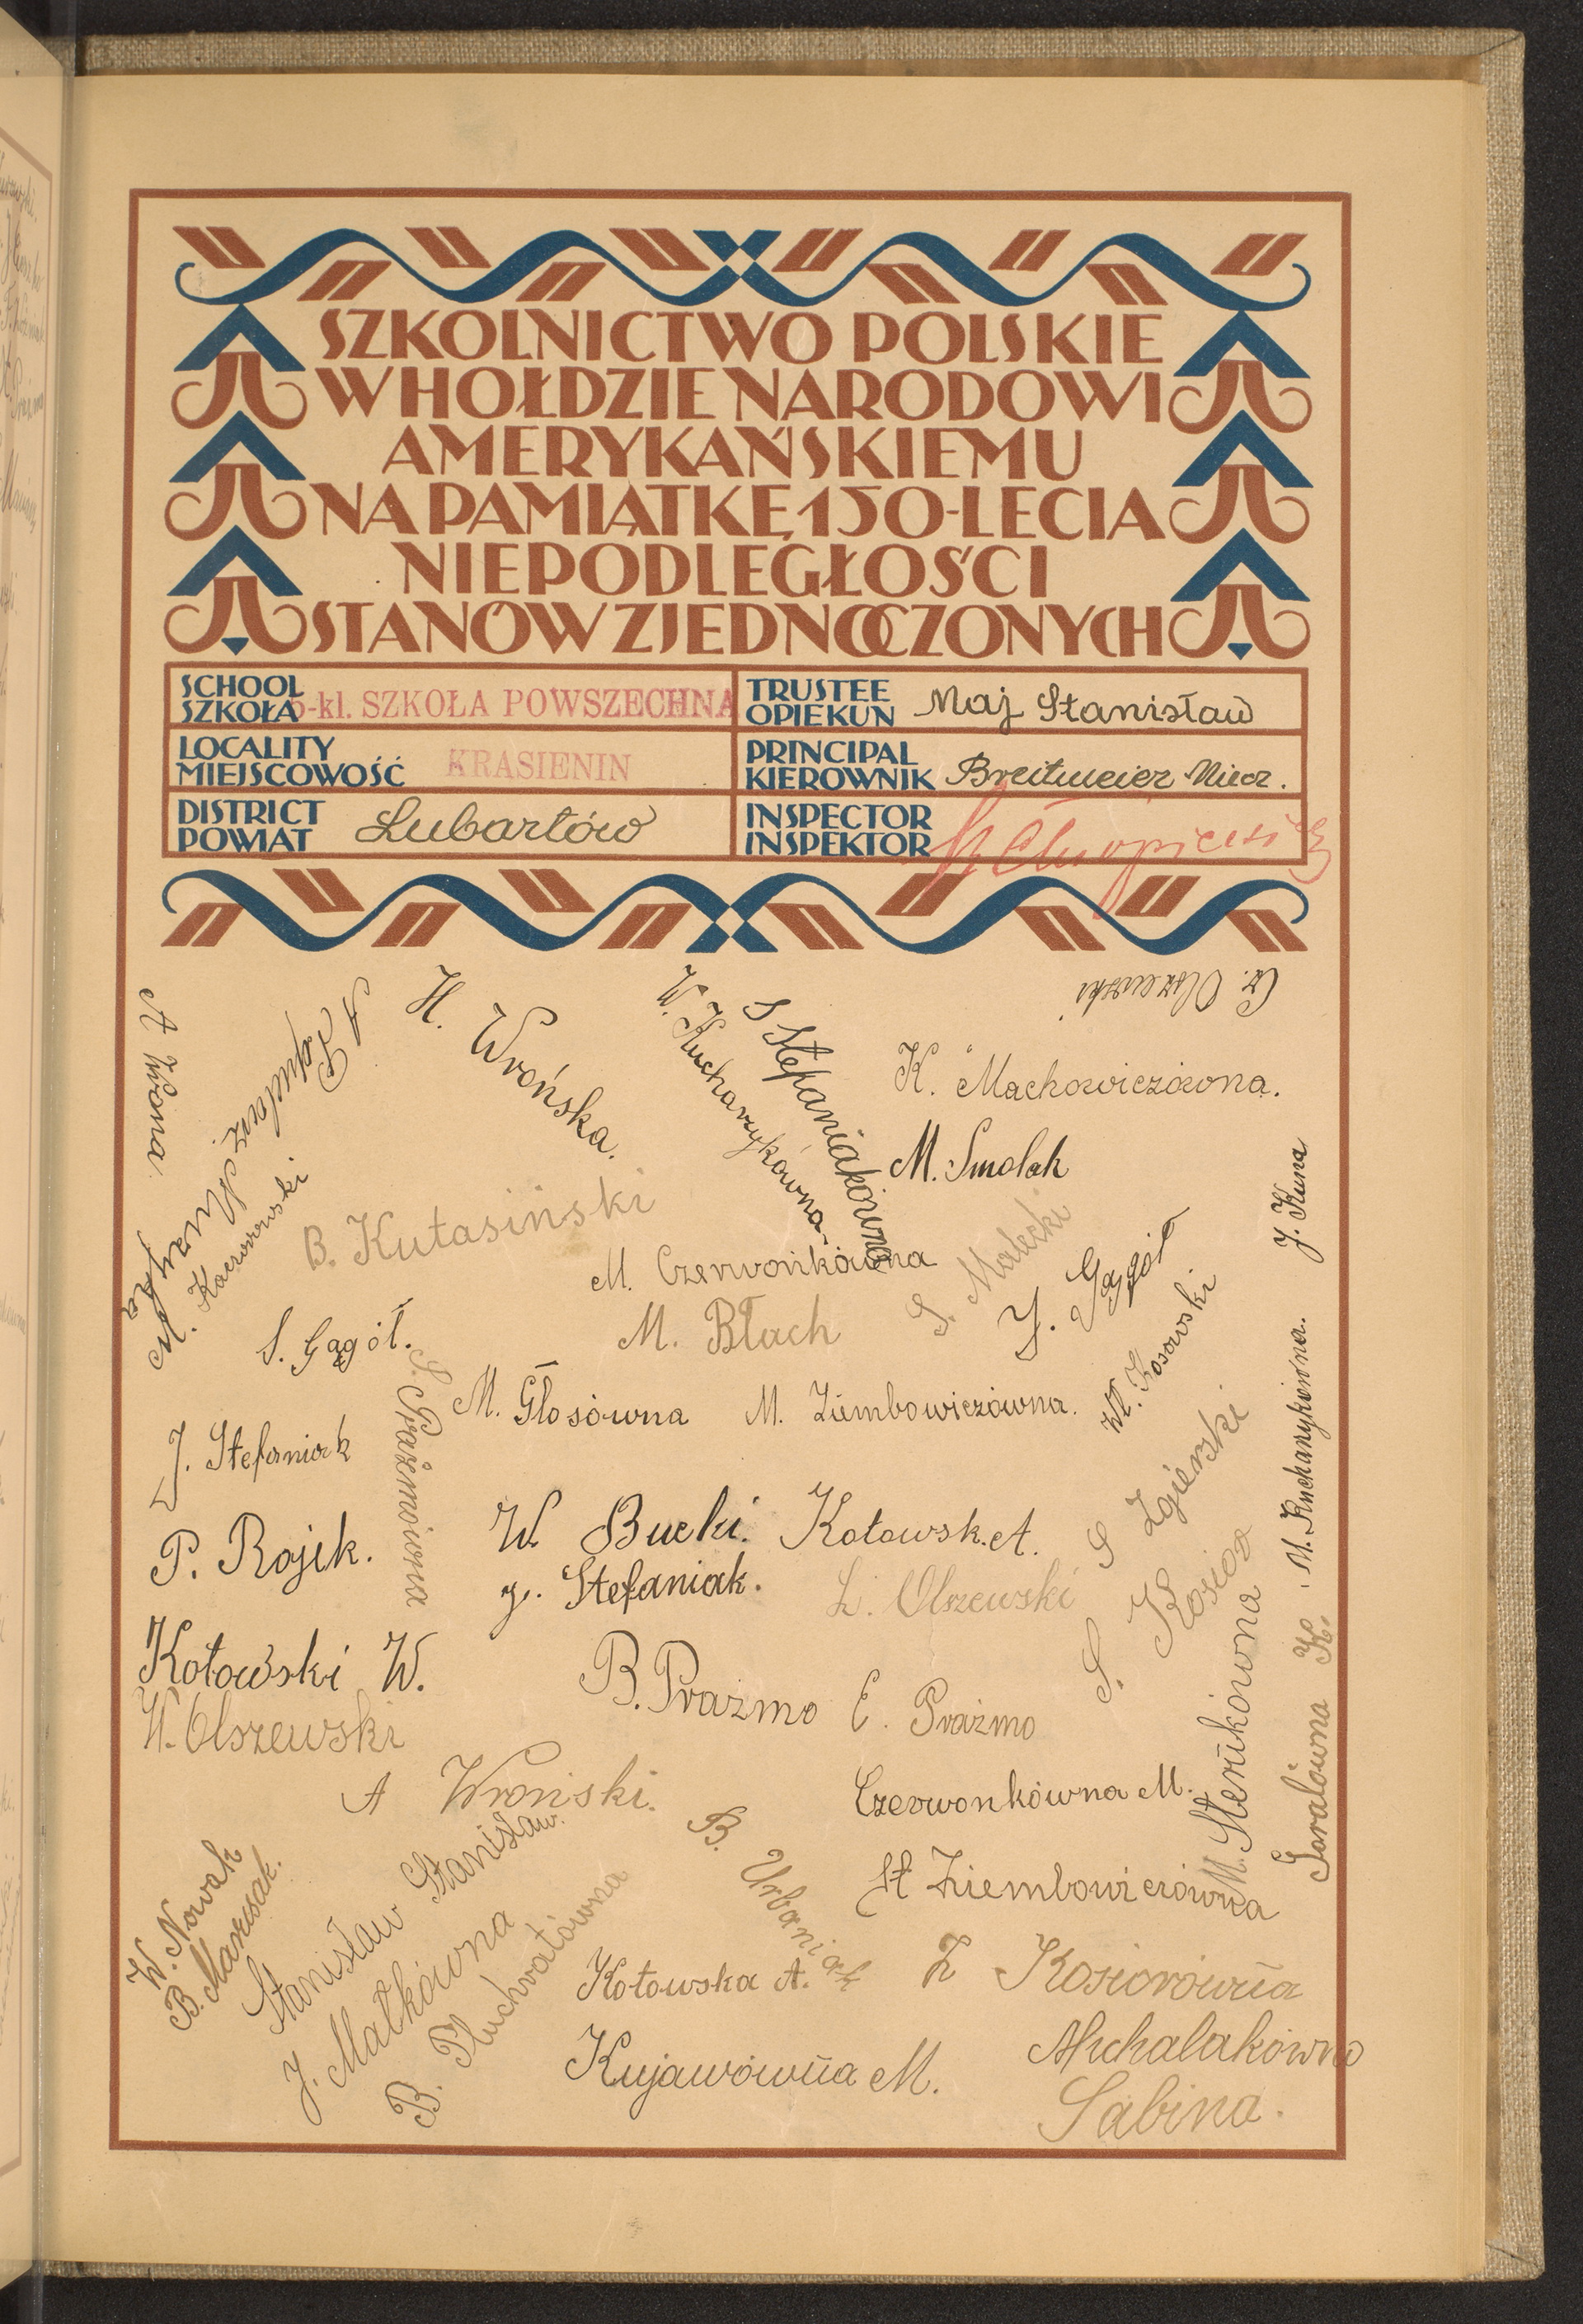 SZKOLNICTWO POLSKIE
W HOŁDZIE NARODOWI
AMERYKAŃSKIEMU
NA PAMIĄTKĘ 150-LECIA
NIEPODLEGŁOŚCI
STANÓW ZJEDNOCZONYCH
SCHOOL
SZKOŁA
-kl. SZKOŁA POWSZECHNA
TRUSTEE
OPIEKUN
Maj Stanisław
LOCALITY
MIEJSCOWOŚĆ
KRASIENIN
PRINCIPAL
KIEROWNIK
Breitmeier Miecz.
DISTRICT
POWIAT
Lubartów
INSPECTOR
INSPEKTOR
Cz. Olszewski
A Wrona
H. Wrońska.
W. Kucharzykówna
S Stefaniakówna
K. Machowiczówna.
M. Smolak
J. Kuna
Kaczorowski
B. Kutasiński
M. Czerwonkówna
S. Małecki
J. Gągół
S. Gągół.
M. Błach
Wł. Kosowski
S. Prażmowna
M. Głosówna
M. Ziembowiczówna.
M. Kucharzykówna.
J. Stefaniak
S Zgierski
P. Rojik.
W. Bucki.
Kotowsk. A.
J. Stefaniak.
L. Olszewski
S. Kosior
Kotowski W.
W. Olszewski
B. Prażmo
E. Prażmo
M. Steńkowna
Goralówna K.
A Wroński.
Czerwonkówna M.
B. Urbaniak
St Ziembowiczówna
W. Nowak
B. Marcsak.
Stanisław Stanisław.
J. Małkówna
B. Pluchratówna
Kotowska A.
Z Kosiorówna
Kujawówna M.
Michalakówna
Sabina.